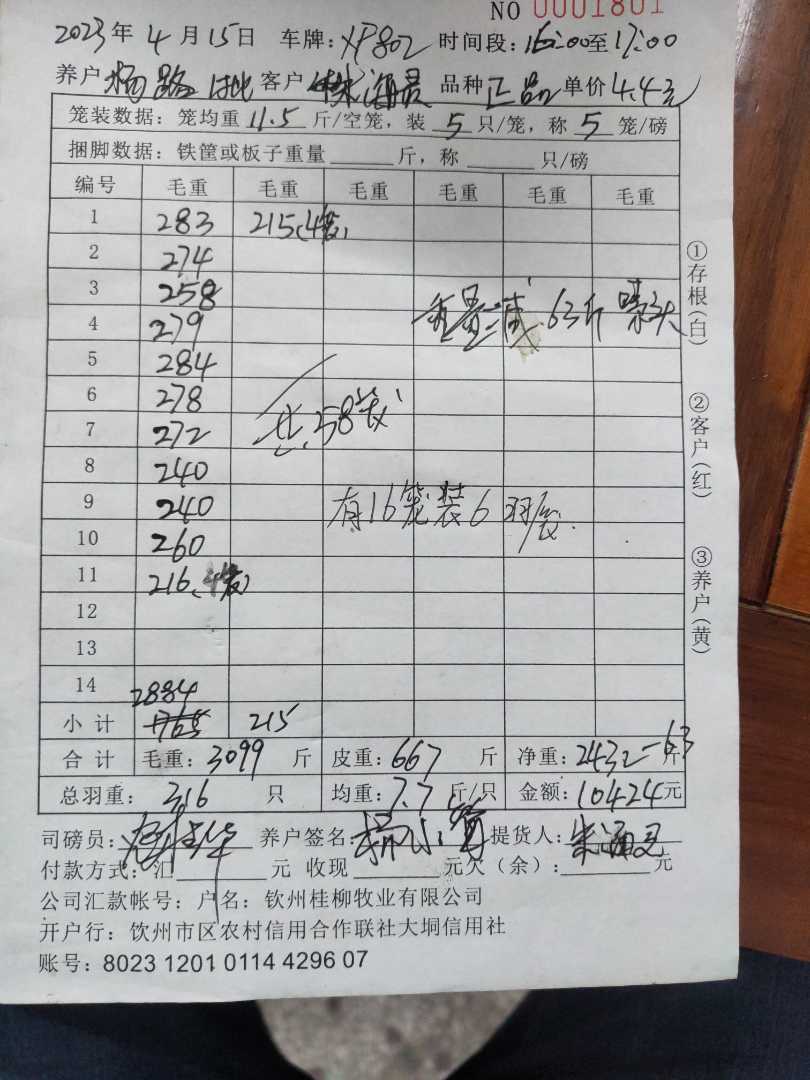 NO 0001801
2023年 4月15日 车牌:XP802 时间段:16:00至17:00
养户 杨路 1批 客户 朱涌灵 品种 正品 单价4.4元
笼装数据:笼均重 11.5 斤/空笼,装 5 只/笼,称 5 笼/磅
捆脚数据:铁筐或板子重量______斤,称______只/磅
编号 毛重 毛重 毛重 毛重 毛重 毛重
1 283 215(4笼)
2 274
3 258
重量减 63斤
4 279
5 284
6 278
共58笼
7 272
8 240
9 240
有16笼装6羽/笼
10 260
11 216(4笼)
12
13
14
2884
小计 215
合计 毛重:3099 斤 皮重:667 斤 净重:2432-63 斤
总羽重:316 只 均重:7.7 斤/只 金额:10424元
司磅员: 养户签名: 提货人:朱涌灵
付款方式:汇______元 收现______元欠(余):______元
公司汇款帐号:户名:钦州桂柳牧业有限公司
开户行:钦州市区农村信用合作联社大垌信用社
账号:8023 1201 0114 4296 07
①存根(白)
②客户(红)
③养户(黄)